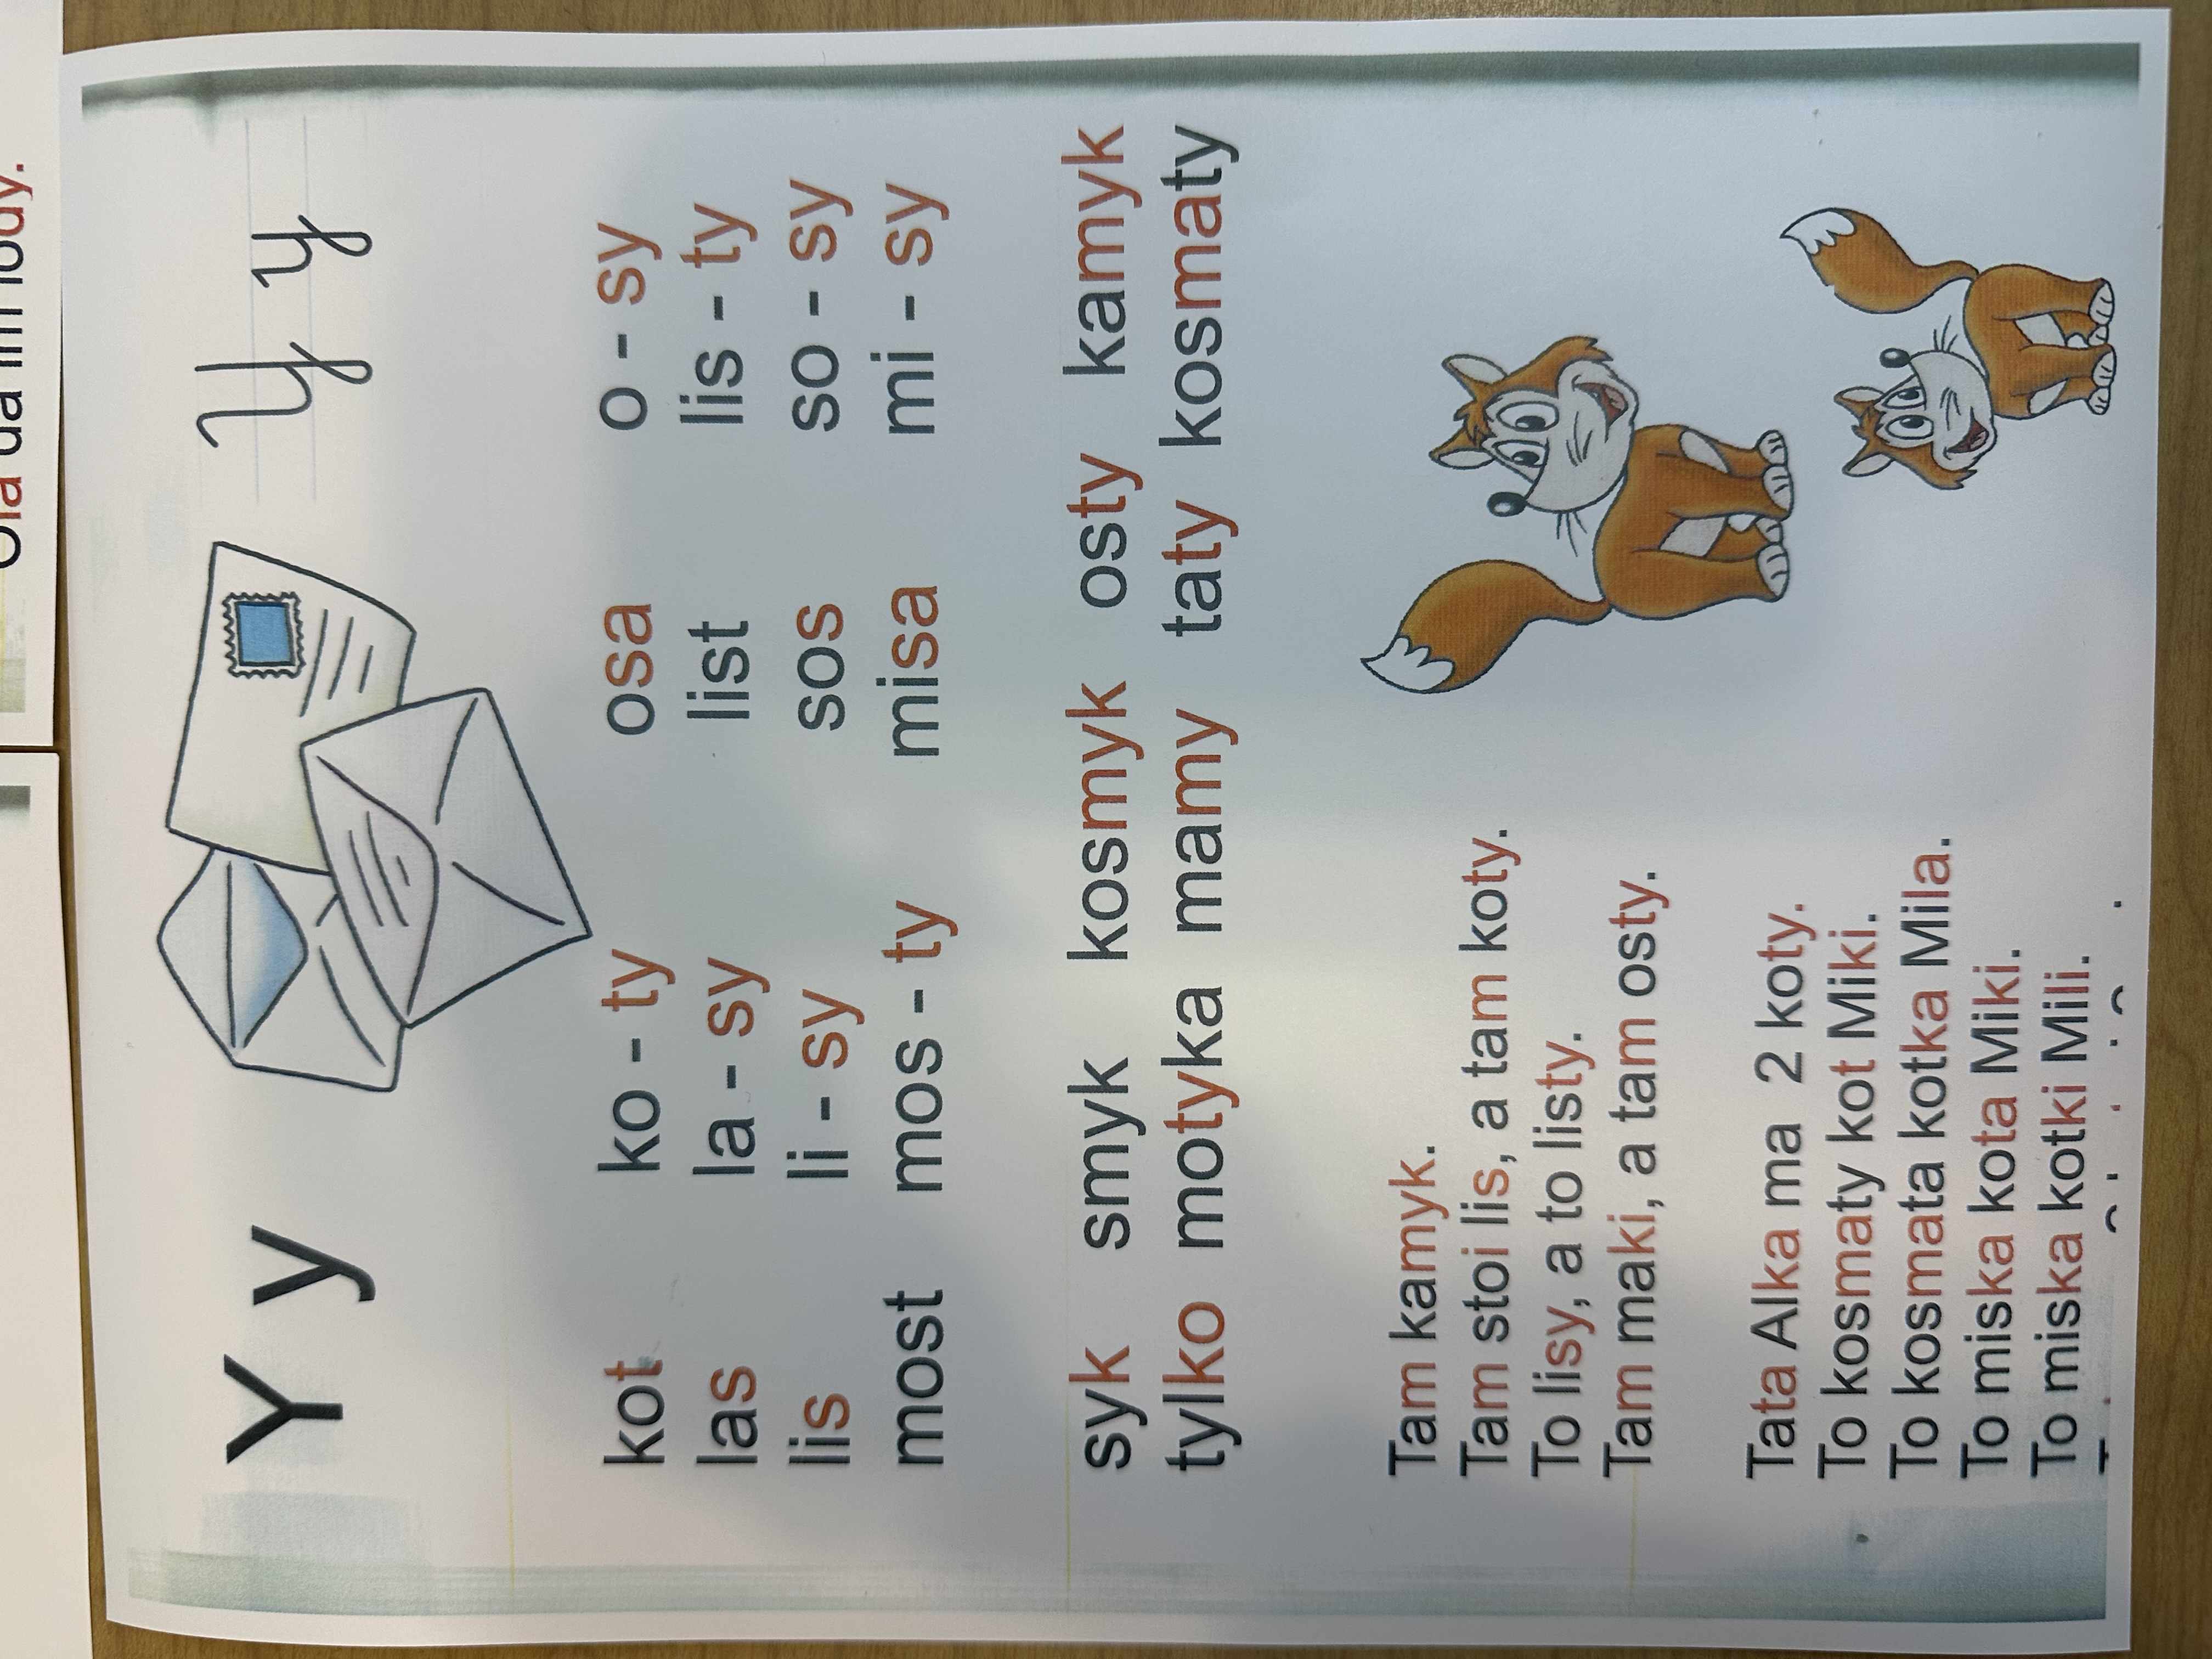 Y y Y y
kot ko - ty osa o - sy
las la - sy list lis - ty
lis li - sy sos so - sy
most mos - ty misa mi - sy
syk smyk kosmyk osty kamyk
tylko motyka mamy taty kosmaty
Tam kamyk.
Tam stoi lis, a tam koty.
To lisy, a to listy.
Tam maki, a tam osty.
Tata Alka ma 2 koty.
To kosmaty kot Miki.
To kosmata kotka Mila.
To miska kota Miki.
To miska kotki Mili.